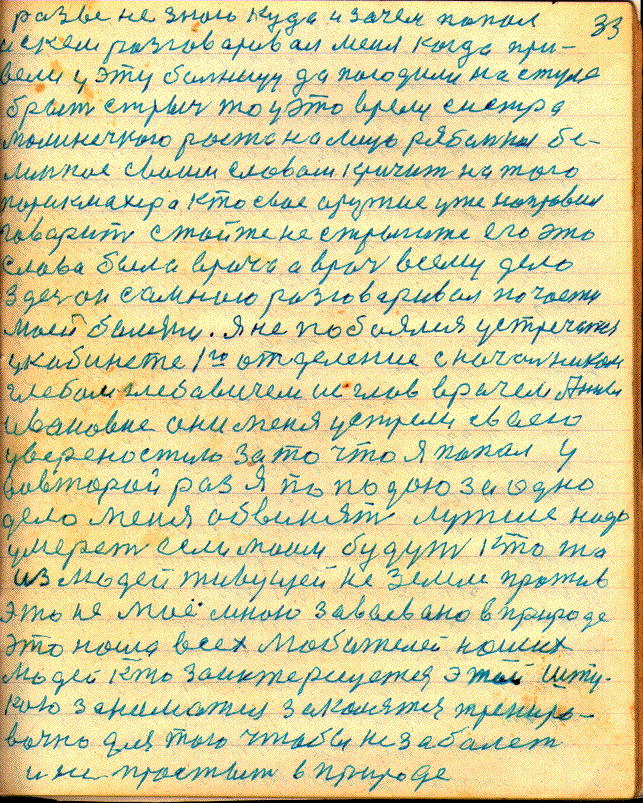 33
разве не знаю куда и зачем попал
и скем разговаривал меня когда при-
вели у эту болницу да посодили на стуле
брыт стрыч то у это время систра
молинечкого роста на лицо рябатня бе-
литкое своим словам кричит на того
порикмахера кто свае оружие уже направил
говарит стойте не стрыгите его это
слова была врача а врач всему дело
здеч он самною разговаривал по части
моей балезни. Я не побоялся устречатся
у кабинете 1го отделение с начальником
глебом глебавичем и с глов врачем Анной
ивановне они меня устрели сваею
увереностию за то что я попал у
вовторой раз я по подаю за одно
дело меня обвинят лутше надо
умерет если моим будут кто то
из людей живущей не земле против
это не моё мною завоевано в природе
это наша всех любителей наших
людей кто заинтерисуется этой шту-
кою заниматся закалятся трениро-
вочно для того чтобы не заболет
и не простыт в природе